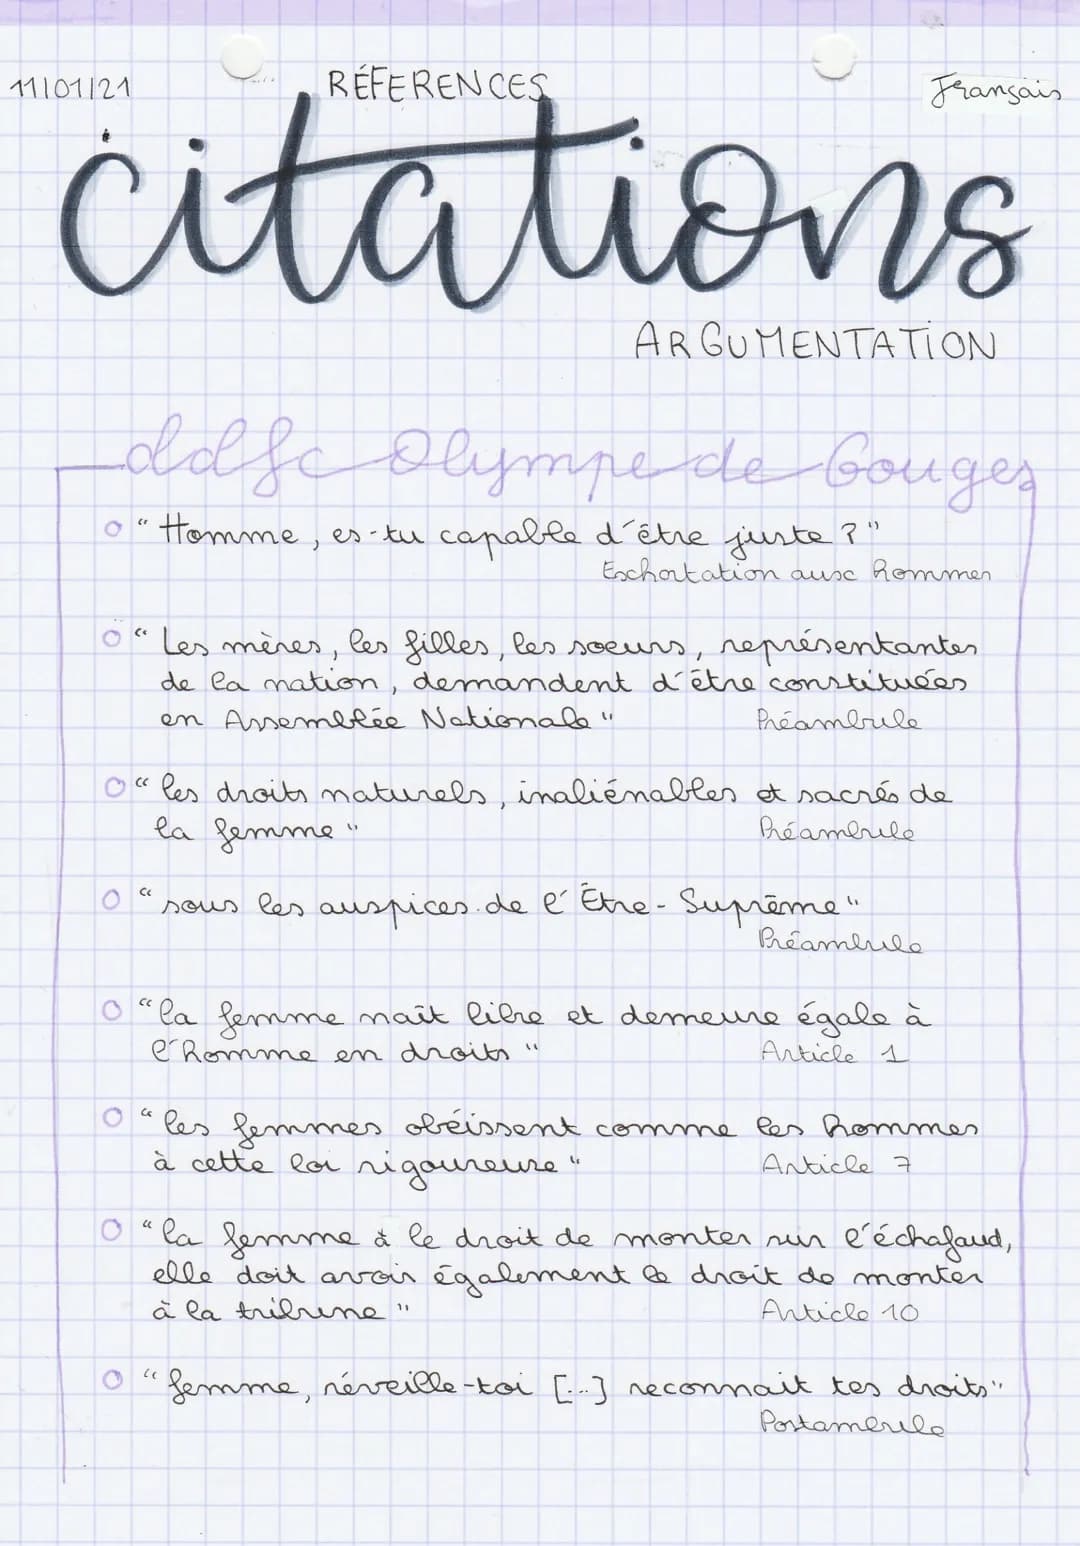 11/01/21
RÉFERENCES
Français
citations
ARGUMENTATION
ddfc Olympe de Gouges
"Homme, es-tu capable d'être juste ?"
Exhortation aux hommes
"Les mères, les filles, les soeurs, représentantes
de la nation, demandent d'être constituées
en Assemblée Nationale"
Préambule
"les droits naturels, inaliénables et sacrés de
la femme"
Préambule
"sous les auspices de l'Être-Suprême"
Préambule
"la femme naît libre et demeure égale à
l'homme en droits"
Article 1
"les femmes obéissent comme les hommes
à cette loi rigoureuse"
Article 7
"la femme à le droit de monter sur l'échafaud,
elle doit avoir également le droit de monter
à la tribune"
Article 10
"femme, réveille-toi [...] reconnait tes droits"
Postambule